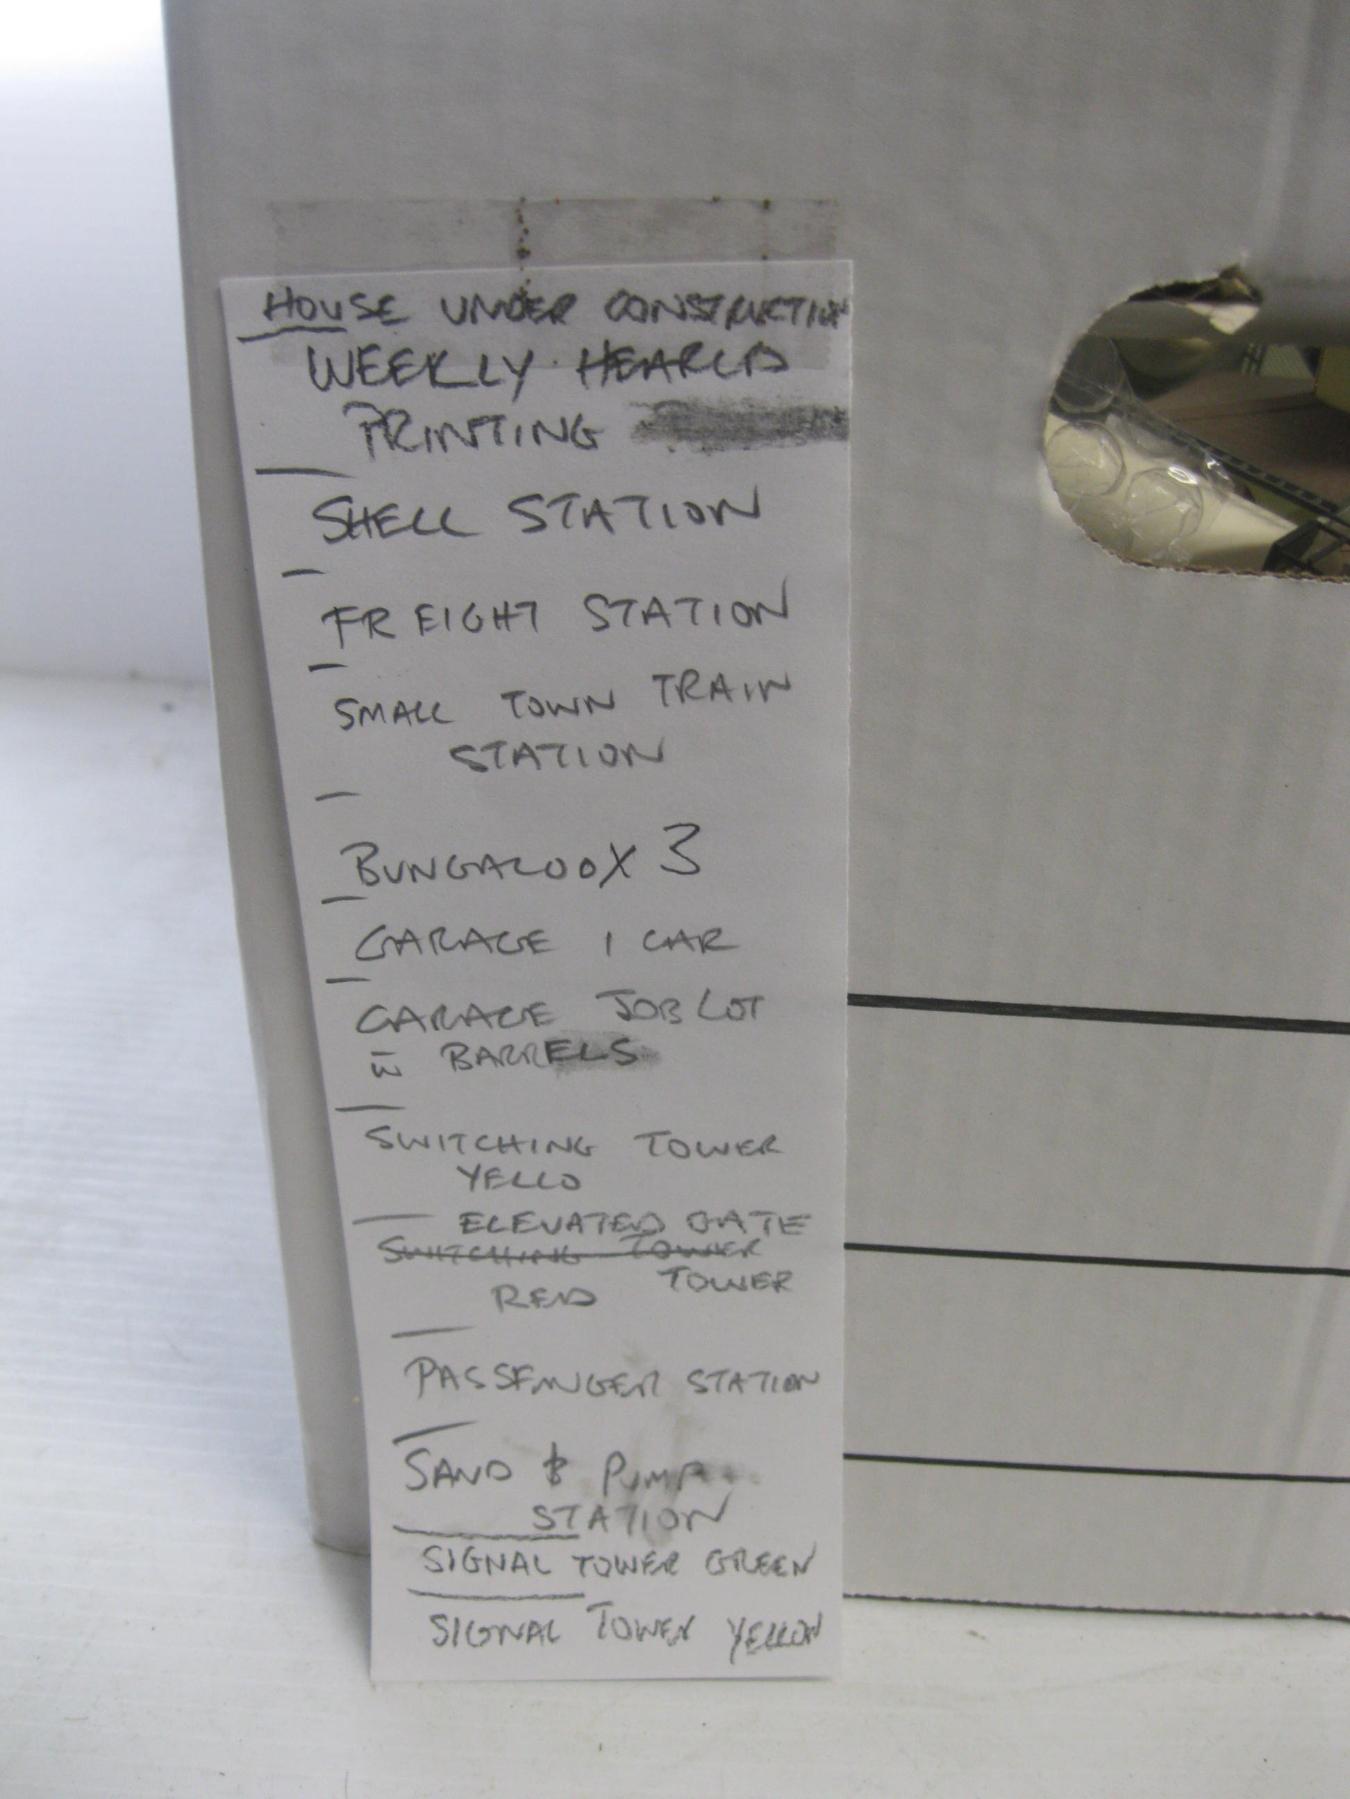 HOUSE UNDER CONSTRUCTION
WEEKLY HEARLD
PRINTING
SHELL STATION
FREIGHT STATION
SMALL TOWN TRAIN
STATION
BUNGALOO X 3
GARAGE 1 CAR
GARAGE JOB LOT
W BARRELS
SWITCHING TOWER
YELLO
ELEVATED GATE
SWITCHING TOWER
TOWER
RED
PASSENGER STATION
SAND & PUMP
STATION
SIGNAL TOWER GREEN
SIGNAL TOWER YELLOW